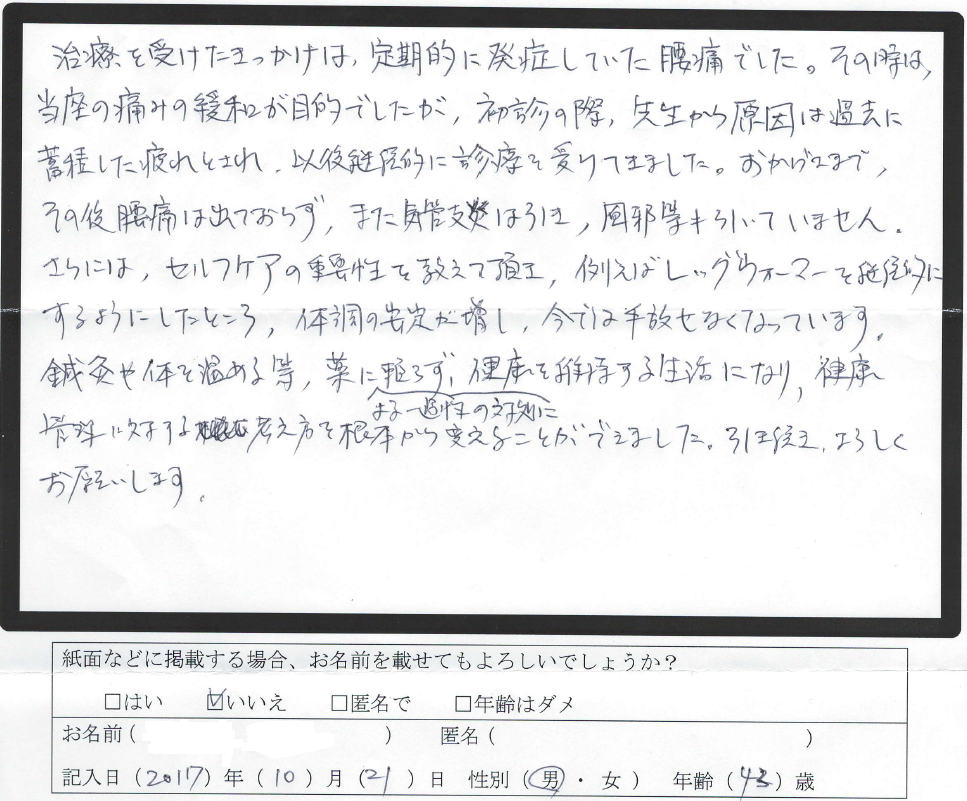 治療を受けたきっかけは、定期的に発症していた腰痛でした。その時は、
当座の痛みの緩和が目的でしたが、初診の際、先生から原因は過去に
蓄積した疲れとされ、以後継続的に診療を受けてきました。おかげさまで、
その後腰痛は出ておらず、また気管支炎はおろか、風邪等も引いていません。
さらには、セルフケアの重要性を教えて頂き、例えばレッグウォーマーを継続的に
するようにしたところ、体調の安定が増し、今では手放せなくなっています。
鍼灸や体を温める等、薬に頼らず、健康を維持する生活になり、健康
よる一過性の対処に
管理に対する考え方を根本から変えることができました。引き続き、よろしく
お願いします。
紙面などに掲載する場合、お名前を載せてもよろしいでしょうか？
□はい ☑いいえ □匿名で □年齢はダメ
お名前（ ） 匿名（ ）
記入日（2017）年（10）月（21）日 性別（男・女） 年齢（43）歳